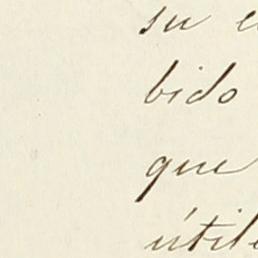 su
bido
que
útile